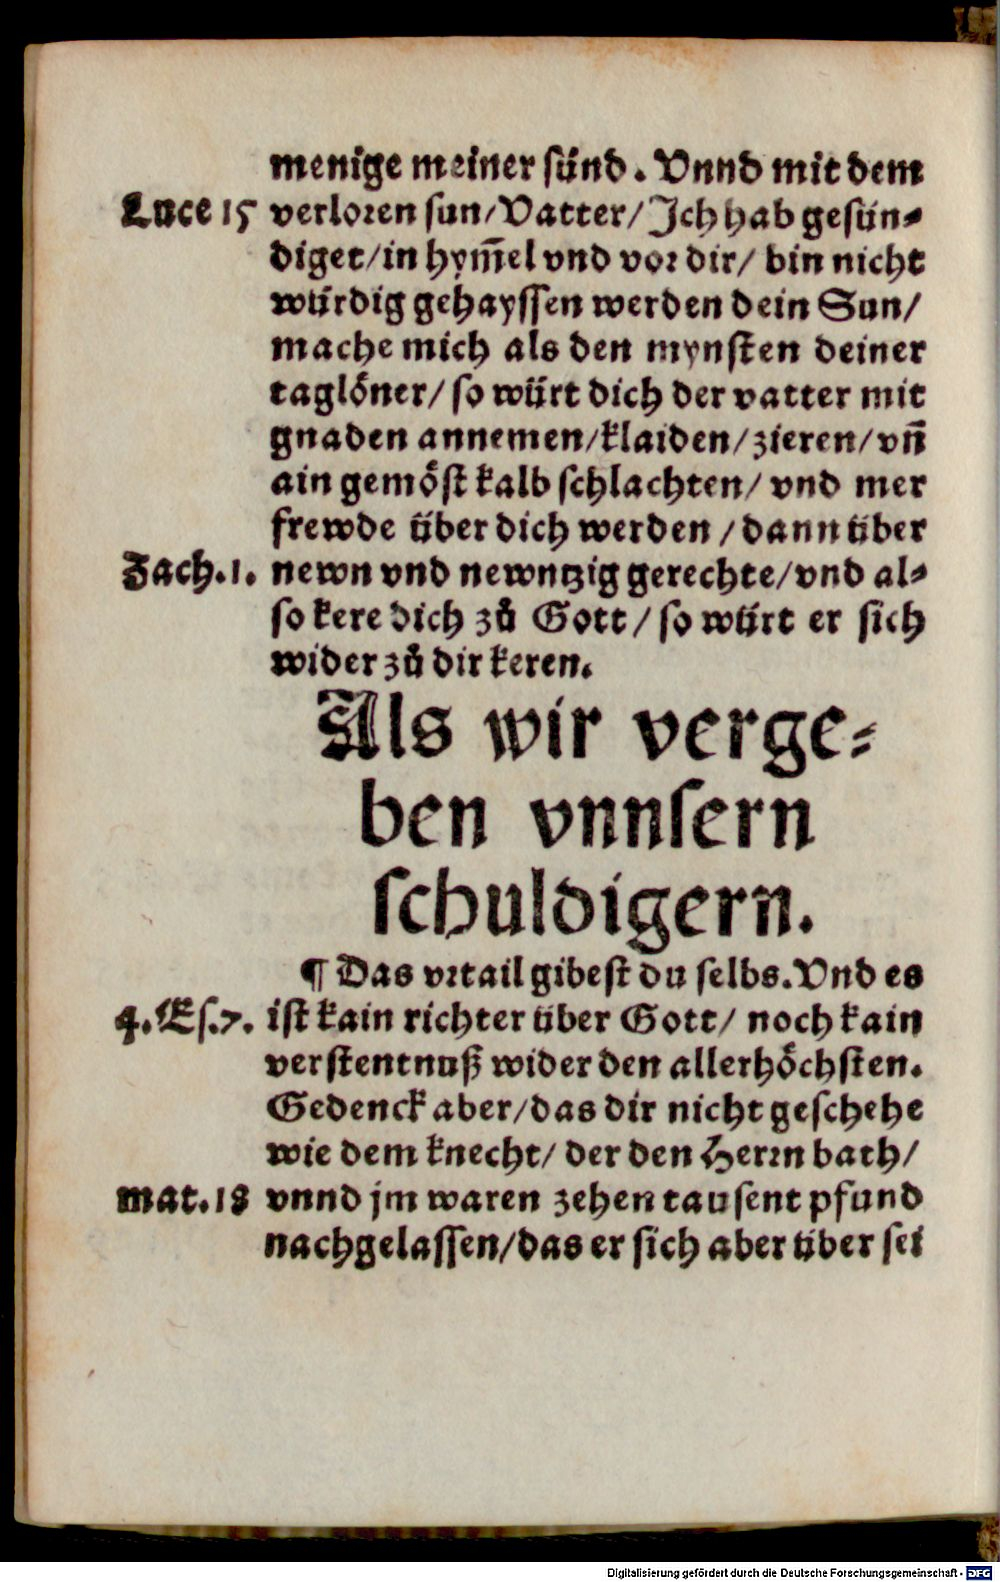 menige meiner sünd. Vnnd mit dem
Luce 15 verloren sun/Vatter/Jch hab gesün⸗
diget/in hym̃el vnd vor dir/ bin nicht
wuͤrdig gehayssen werden dein Sun/
mache mich als den mynsten deiner
taglöner/ so würt dich der vatter mit
gnaden annemen/klaiden/zieren/vn̄
ain gemöst kalb schlachten/ vnd mer
frewde über dich werden /dann über
Zach.1. newn vnd newntzig gerechte/vnd al⸗
so kere dich zů Gott/ so würt er sich
wider zů dir keren.
Als wir verge⸗
ben vnnsern
schuldigern.
¶ Das vrtail gibest du selbs.Vnd es
4.Es.7. ist kain richter über Gott/ noch kain
verstentnuß wider den allerhöchsten.
Gedenck aber/das dir nicht geschehe
wie dem knecht/ der den Herrn bath/
mat.18 vnnd jm waren zehen tausent pfund
nachgelassen/das er sich aber über sei
Digitalisierung gefördert durch die Deutsche Forschungsgemeinschaft - DFG